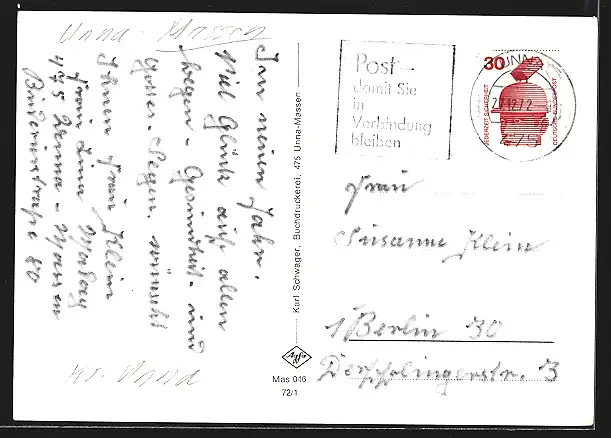 Unna - Massen
Im neuen Jahr.
viel Glück auf allen
wegen - Gesundheit - und
Gottes - Segen. wünscht
Ihnen Frau Klein
Frau Anna
475 Unna - Massen
80
Kr. Unna
Karl Schwager, Buchdruckerei, 475 Unna-Massen
Agfa
Mas 046
72/1
Post -
damit Sie
in
Verbindung
bleiben
UNNA
475
30
JEDERZEIT SICHERHEIT
DEUTSCHE BUNDESPOST
Frau
Susanne Klein
1 Berlin 30
Derfflingerstr. 3